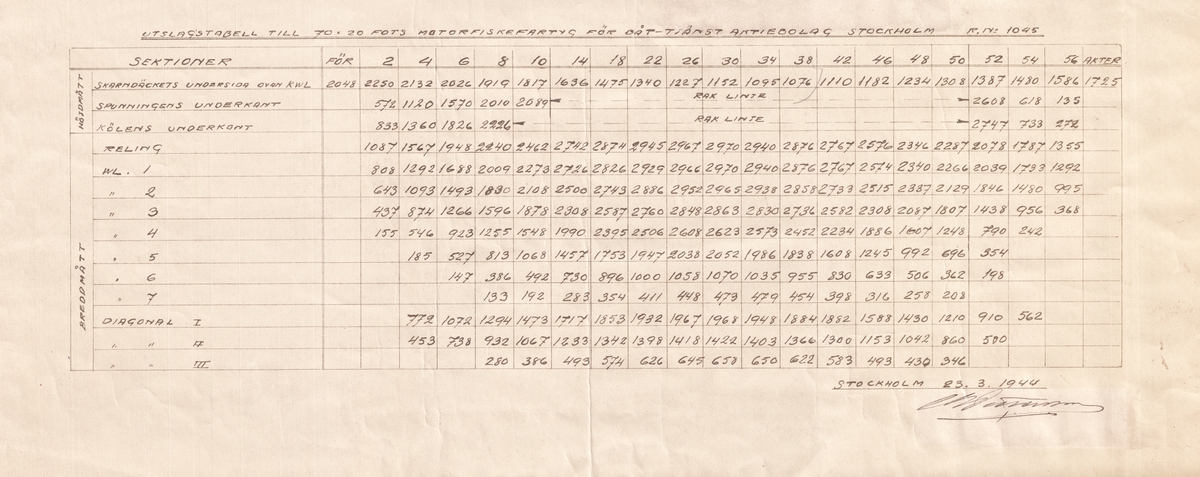 UTSLAGSTABELL TILL 70×20 FOTS MOTORFISKEFARTYG FÖR BÅT-TJÄNST AKTIEBOLAG STOCKHOLM R.Nº 1045
SEKTIONER FÖR 2 4 6 8 10 14 18 22 26 30 34 38 42 46 48 50 52 54 56 AKTER
HÖJDMÅTT
SKARNDÄCKETS UNDERSIDA OVAN KWL 2048 2250 2132 2026 1919 1817 1636 1475 1340 1227 1152 1095 1076 1110 1182 1234 1308 1387 1480 1586 1725
SPUNNINGENS UNDERKANT 572 1120 1570 2010 2089 RAK LINJE 2608 618 135
KÖLENS UNDERKANT 833 1360 1826 2226 RAK LINJE 2747 733 272
BREDDMÅTT
RELING 1087 1567 1948 2240 2462 2742 2874 2945 2967 2970 2940 2876 2767 2576 2346 2287 2078 1787 1355
WL. 1 808 1292 1688 2009 2273 2726 2826 2929 2966 2970 2940 2876 2767 2574 2340 2266 2039 1733 1292
" 2 643 1093 1493 1830 2108 2500 2743 2886 2952 2965 2938 2858 2733 2515 2337 2129 1846 1480 995
" 3 437 874 1266 1596 1878 2308 2587 2760 2848 2863 2830 2736 2582 2308 2087 1807 1438 956 368
" 4 155 546 923 1255 1548 1990 2395 2506 2608 2623 2573 2452 2234 1886 1607 1248 790 242
" 5 185 527 813 1068 1457 1753 1947 2038 2052 1986 1838 1608 1245 992 696 354
" 6 147 386 492 730 896 1000 1058 1070 1035 955 830 633 506 362 198
" 7 133 192 283 354 411 448 473 479 454 398 316 258 208
DIAGONAL I 772 1072 1294 1473 1717 1853 1932 1967 1968 1948 1884 1882 1588 1430 1210 910 562
" " II 453 738 932 1067 1233 1342 1398 1418 1422 1403 1366 1300 1153 1042 860 580
" " III 280 386 493 574 626 645 658 650 622 583 493 430 346
STOCKHOLM 23.3.1944